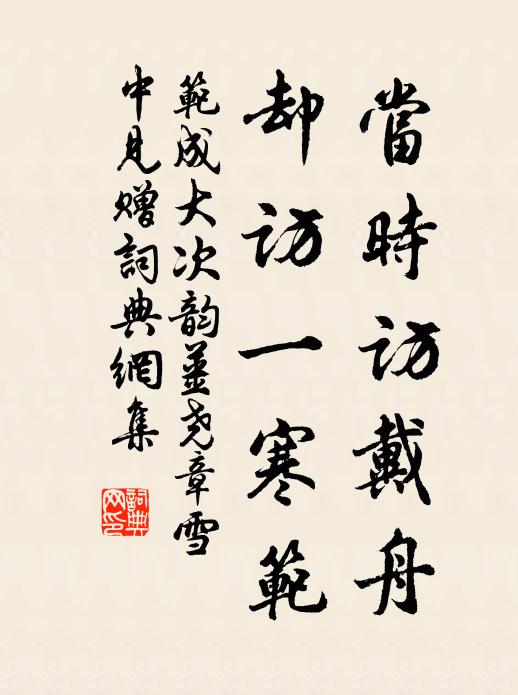 當時訪戴舟
却訪一寒範
範成大次韵姜尧章雪
中見贈詞典網集
詞典
网印